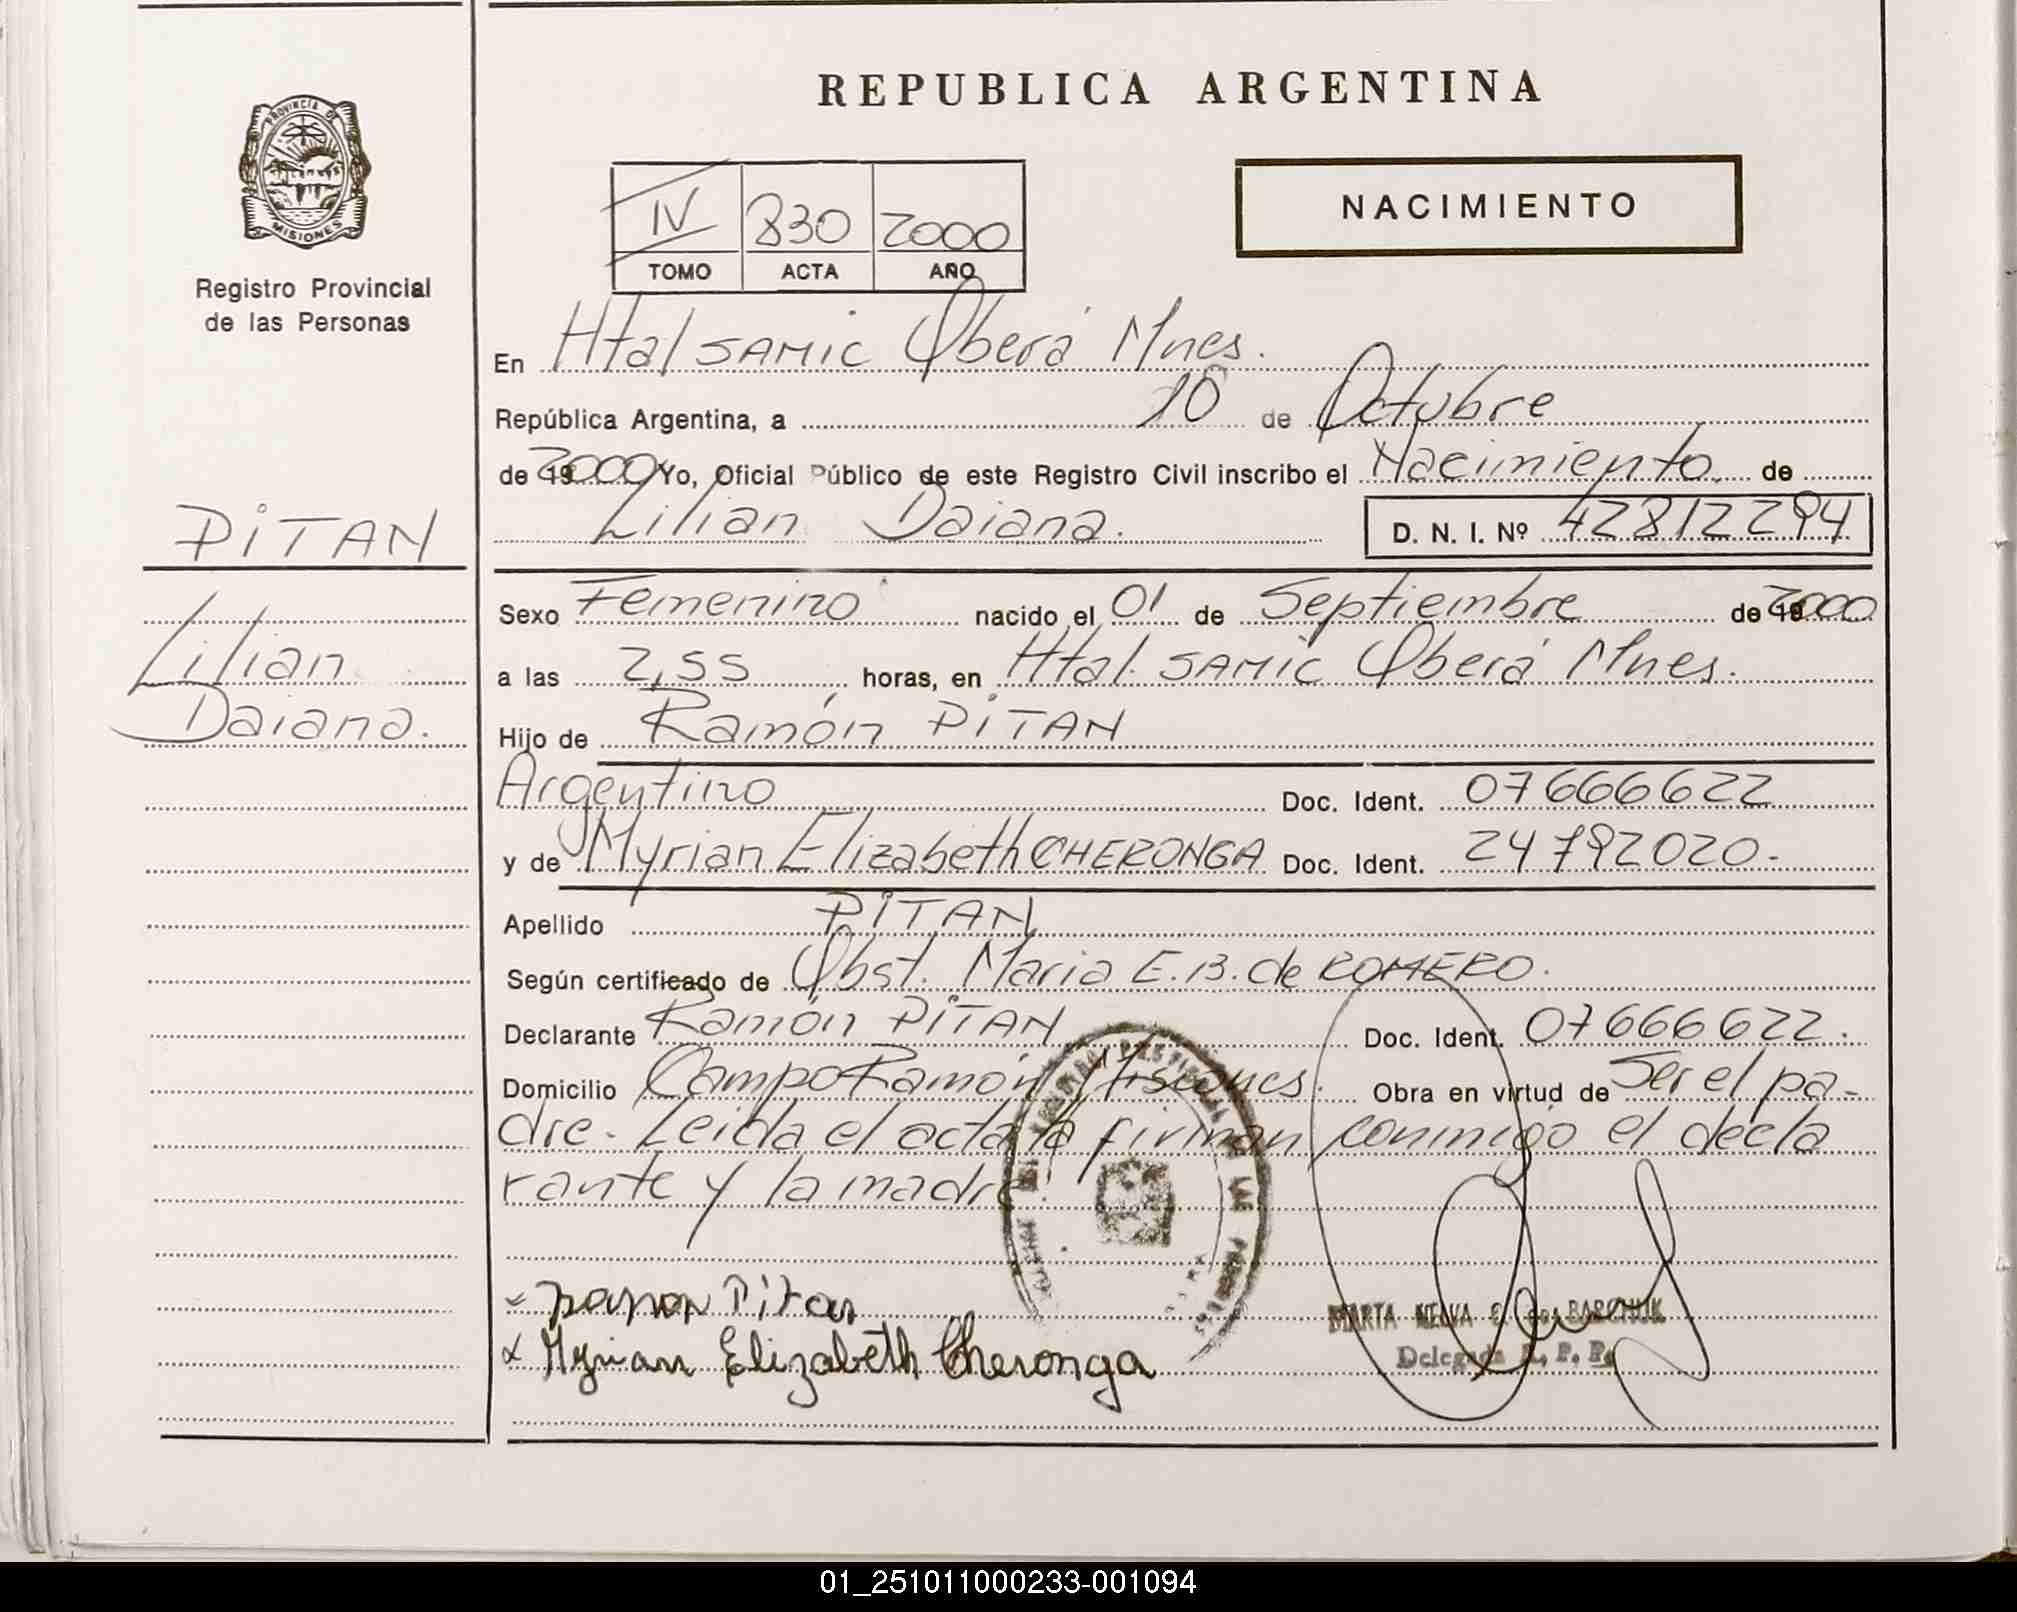 REPUBLICA ARGENTINA
PROVINCIA DE
MISIONES
Registro Provincial
de las Personas
IV 830 2000
TOMO ACTA AÑO
NACIMIENTO
En Htal SAMIC Oberá Mnes.
República Argentina, a 10 de Octubre
de 2000 Yo, Oficial Público de este Registro Civil inscribo el Nacimiento de
Lilian Daiana. D. N. I. Nº 42812294
PITAN
Lilian
Daiana.
Sexo Femenino nacido el 01 de Septiembre de 2000
a las 2,55 horas, en Htal. SAMIC Oberá Mnes.
Hijo de Ramón PITAN
Argentino Doc. Ident. 07666622
y de Myrian Elizabeth CHERONGA Doc. Ident. 24792020.-
Apellido PITAN
Según certificado de Obst. Maria E.B. de ROMERO.
Declarante Ramón PITAN Doc. Ident. 07666622.
Domicilio Campo Ramón Misiones. Obra en virtud de Ser el pa-
dre. Leida el acta la firman conmigo el decla
rante y la madre.
Ramon Pitan
Myrian Elizabeth Cheronga
MARTA NELVA E. BARCHUK
Delegada R. P. P.
01_251011000233-001094